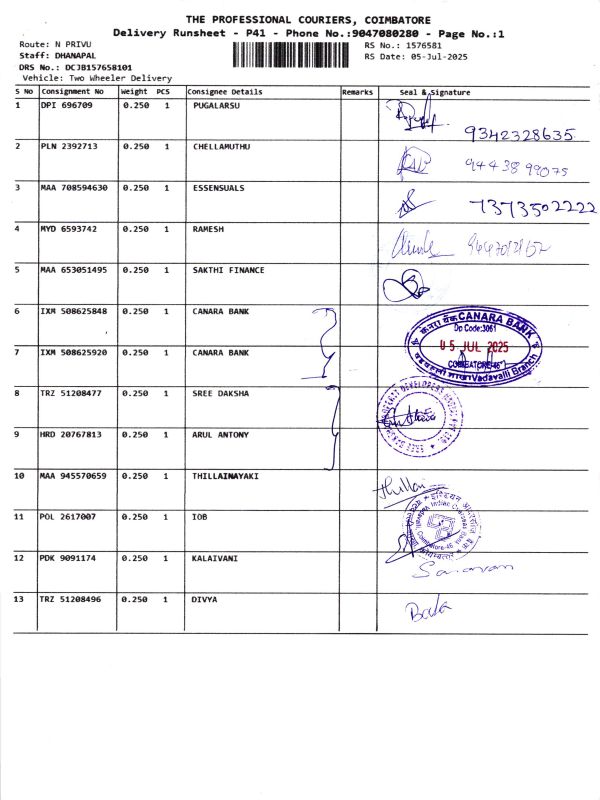 THE PROFESSIONAL COURIERS, COIMBATORE
Delivery Runsheet - P41 - Phone No.:9047080280 - Page No.:1
Route: N PRIVU
Staff: DHANAPAL
DRS No.: DCJB157658101
Vehicle: Two Wheeler Delivery
RS No.: 1576581
RS Date: 05-Jul-2025
S No Consignment No Weight PCS Consignee Details Remarks Seal & Signature
1 DPI 696709 0.250 1 PUGALARSU 9342328635
2 PLN 2392713 0.250 1 CHELLAMUTHU 9443899075
3 MAA 708594630 0.250 1 ESSENSUALS 7373502222
4 MYD 6593742 0.250 1 RAMESH
5 MAA 653051495 0.250 1 SAKTHI FINANCE
6 IXM 508625848 0.250 1 CANARA BANK
7 IXM 508625920 0.250 1 CANARA BANK
CANARA BANK
Dp Code:3061
05 JUL 2025
COIMBATORE-46
Vadavalli Branch
8 TRZ 51208477 0.250 1 SREE DAKSHA
9 HRD 20767813 0.250 1 ARUL ANTONY
10 MAA 945570659 0.250 1 THILLAINAYAKI Thillai
11 POL 2617007 0.250 1 IOB
Indian Overseas Bank
Coimbatore-46
12 PDK 9091174 0.250 1 KALAIVANI Saravan
13 TRZ 51208496 0.250 1 DIVYA